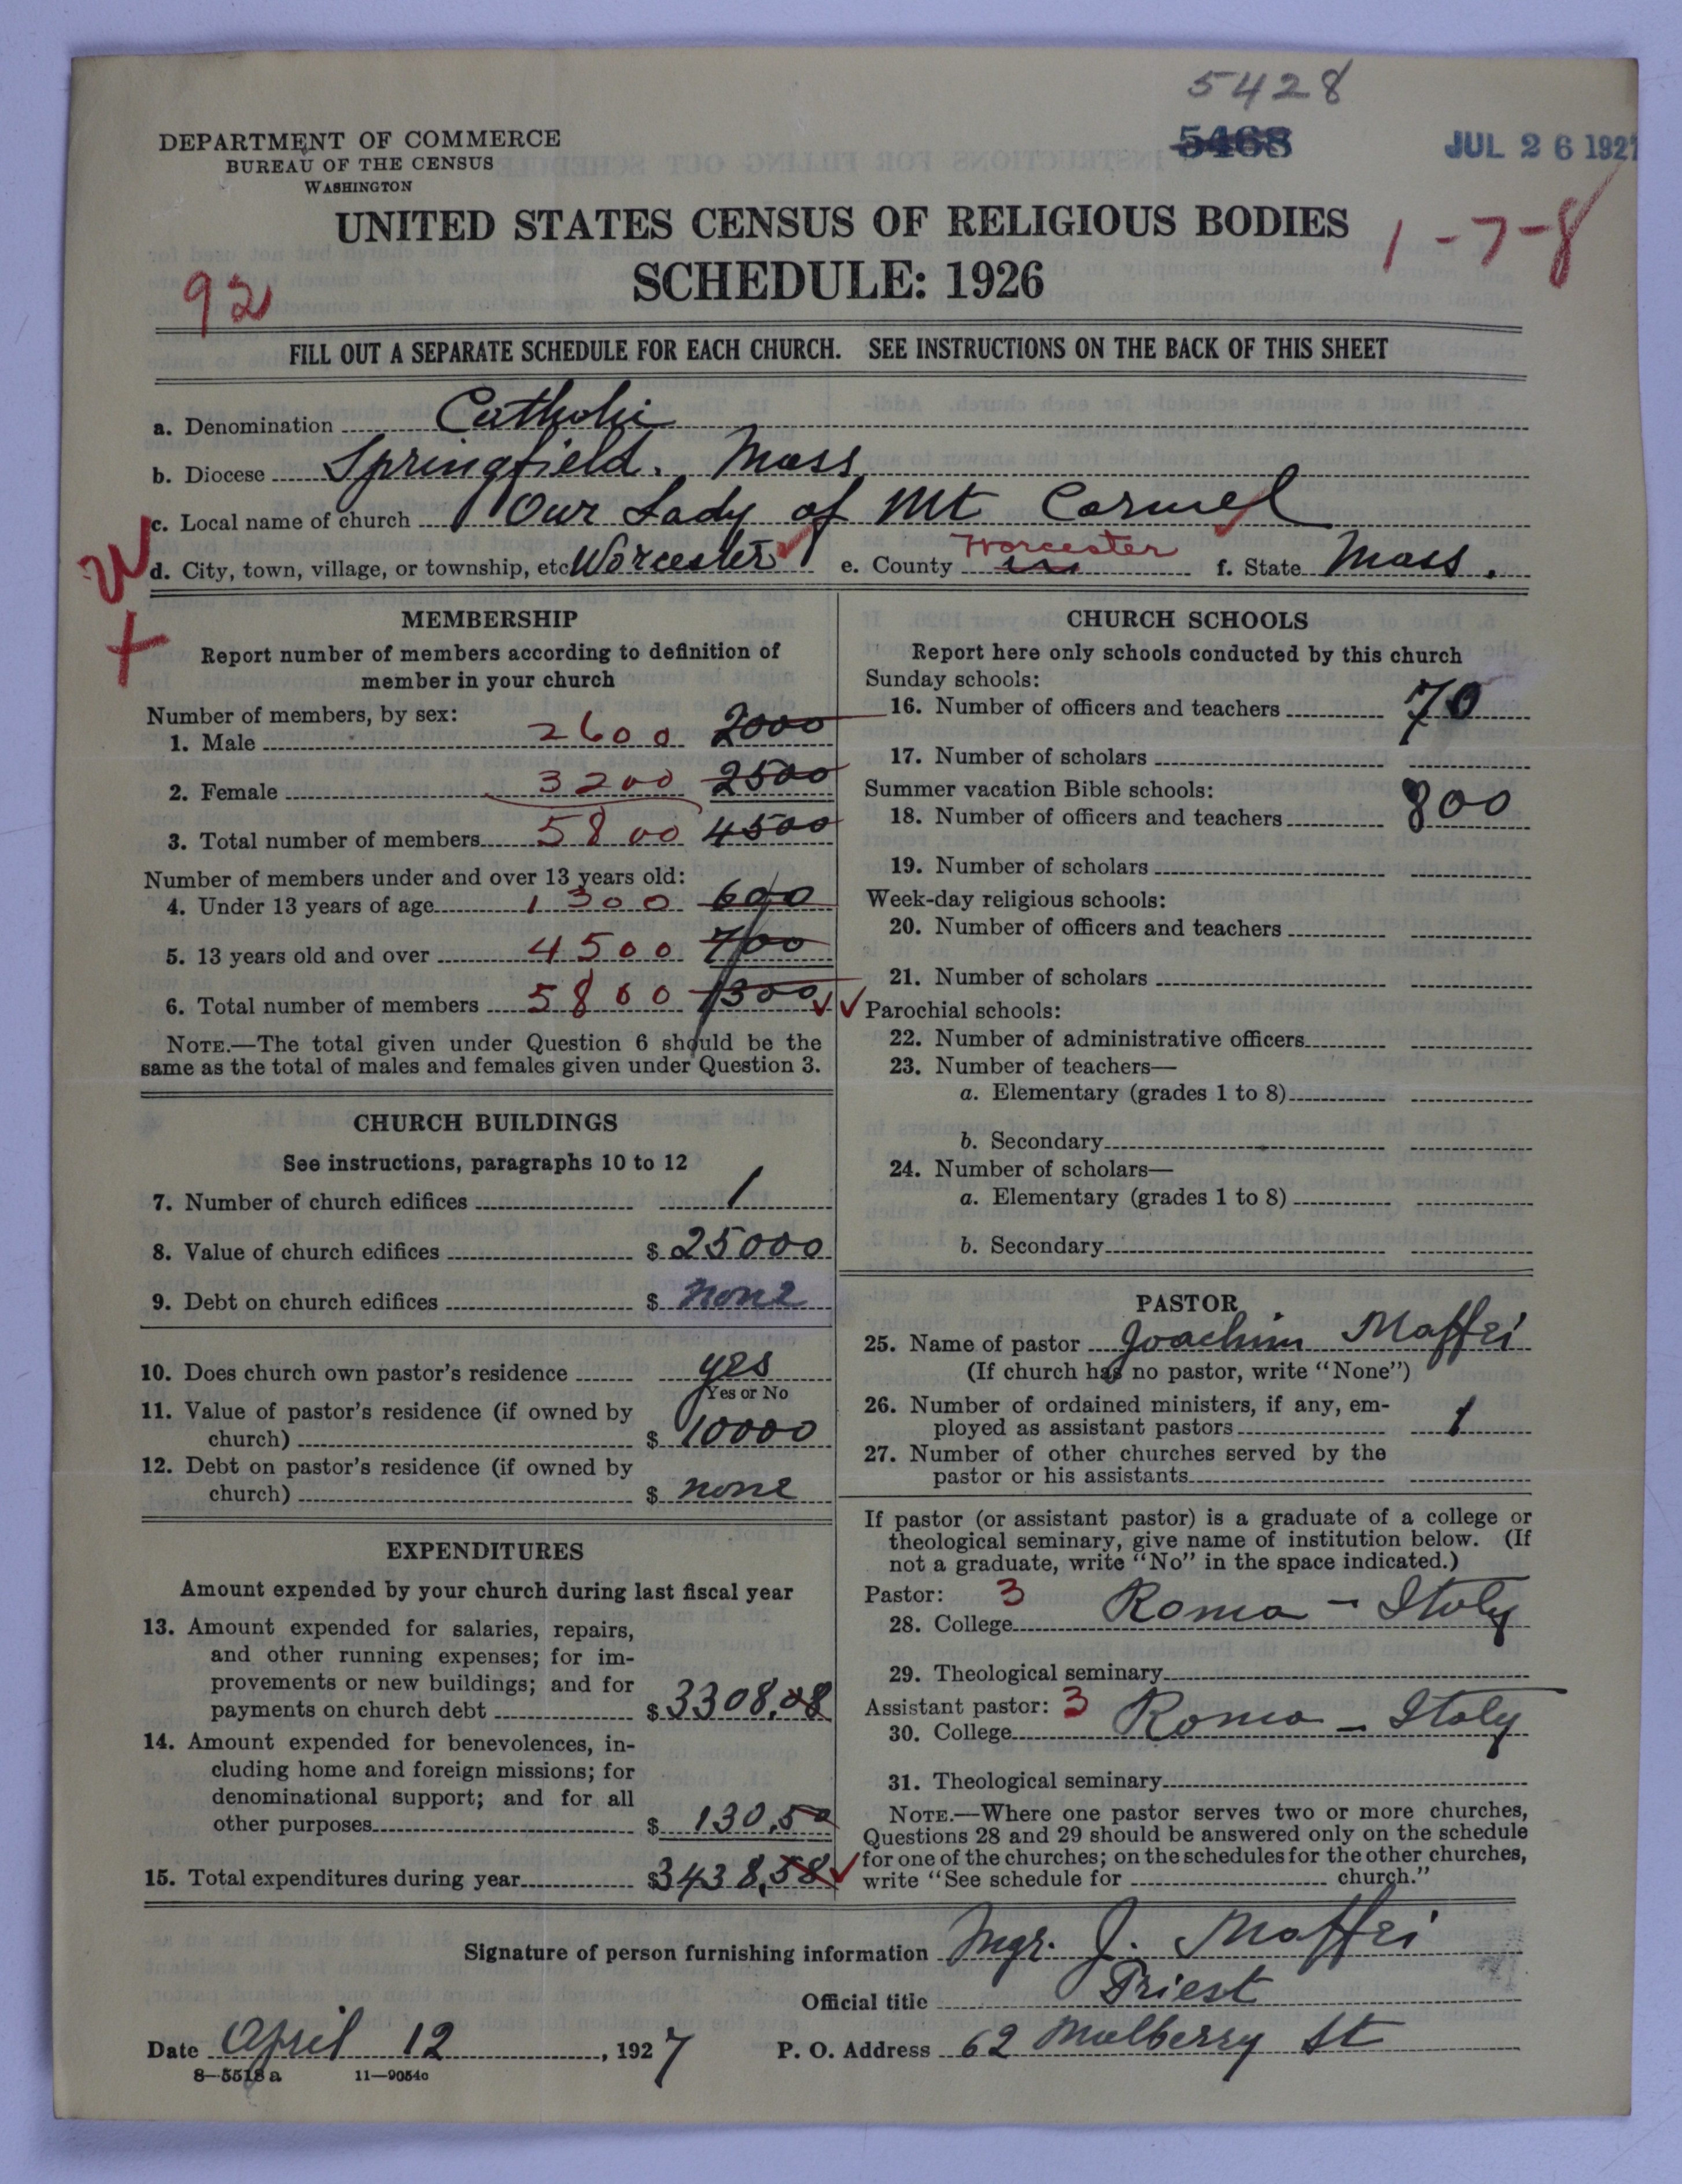 5428
5468
JUL 26 1927
DEPARTMENT OF COMMERCE
BUREAU OF THE CENSUS
WASHINGTON
UNITED STATES CENSUS OF RELIGIOUS BODIES
1-7-8
SCHEDULE: 1926
92
FILL OUT A SEPARATE SCHEDULE FOR EACH CHURCH. SEE INSTRUCTIONS ON THE BACK OF THIS SHEET
a. Denomination Catholic
b. Diocese Springfield. Mass
c. Local name of church Our Lady of Mt Carmel
d. City, town, village, or township, etc Worcester e. County Worcester f. State Mass.
MEMBERSHIP
Report number of members according to definition of
member in your church
Number of members, by sex:
1. Male 2600 2000
2. Female 3200 2500
3. Total number of members 5800 4500
Number of members under and over 13 years old:
4. Under 13 years of age 1300 600
5. 13 years old and over 4500 700
6. Total number of members 5800 1300
NOTE.—The total given under Question 6 should be the
same as the total of males and females given under Question 3.
CHURCH BUILDINGS
See instructions, paragraphs 10 to 12
7. Number of church edifices 1
8. Value of church edifices $ 25000
9. Debt on church edifices $ none
10. Does church own pastor's residence yes
Yes or No
11. Value of pastor's residence (if owned by
church) $ 10000
12. Debt on pastor's residence (if owned by
church) $ none
EXPENDITURES
Amount expended by your church during last fiscal year
13. Amount expended for salaries, repairs,
and other running expenses; for im-
provements or new buildings; and for
payments on church debt $ 3308.08
14. Amount expended for benevolences, in-
cluding home and foreign missions; for
denominational support; and for all
other purposes $ 130.50
15. Total expenditures during year $ 3438.58
CHURCH SCHOOLS
Report here only schools conducted by this church
Sunday schools:
16. Number of officers and teachers 70
17. Number of scholars
Summer vacation Bible schools:
18. Number of officers and teachers 800
19. Number of scholars
Week-day religious schools:
20. Number of officers and teachers
21. Number of scholars
Parochial schools:
22. Number of administrative officers
23. Number of teachers—
a. Elementary (grades 1 to 8)
b. Secondary
24. Number of scholars—
a. Elementary (grades 1 to 8)
b. Secondary
PASTOR
25. Name of pastor Joachim Maffei
(If church has no pastor, write "None")
26. Number of ordained ministers, if any, em-
ployed as assistant pastors 1
27. Number of other churches served by the
pastor or his assistants
If pastor (or assistant pastor) is a graduate of a college or
theological seminary, give name of institution below. (If
not a graduate, write "No" in the space indicated.)
Pastor: 3
28. College Roma - Italy
29. Theological seminary
Assistant pastor: 3
30. College Roma - Italy
31. Theological seminary
NOTE.—Where one pastor serves two or more churches,
Questions 28 and 29 should be answered only on the schedule
for one of the churches; on the schedules for the other churches,
write "See schedule for church."
Signature of person furnishing information Mgr. J. Maffei
Official title Priest
Date April 12, 1927 P. O. Address 62 Mulberry St
8—5518a 11—9054c